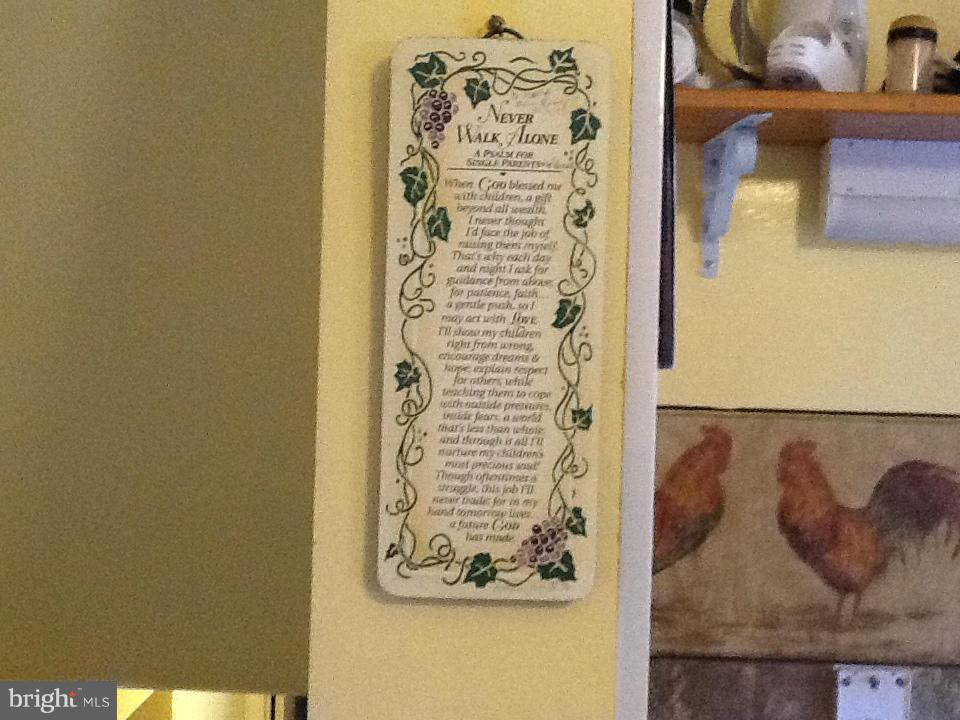 Never
Walk Alone
A Psalm for
Single Parents
When God blessed me
with children, a gift
beyond all wealth,
I never thought
I'd face the job of
raising them myself.
That's why each day
and night I ask for
guidance from above;
for patience, faith...
a gentle push, so I
may act with love.
I'll show my children
right from wrong,
encourage dreams &
hope; explain respect
for others, while
teaching them to cope
with outside pressures,
inside fears, a world
that's less than whole;
and through it all I'll
nurture my children's
most precious soul!
Though oftentimes a
struggle, this job I'll
never trade; for in my
hand tomorrow lives...
a future God
has made.
bright MLS